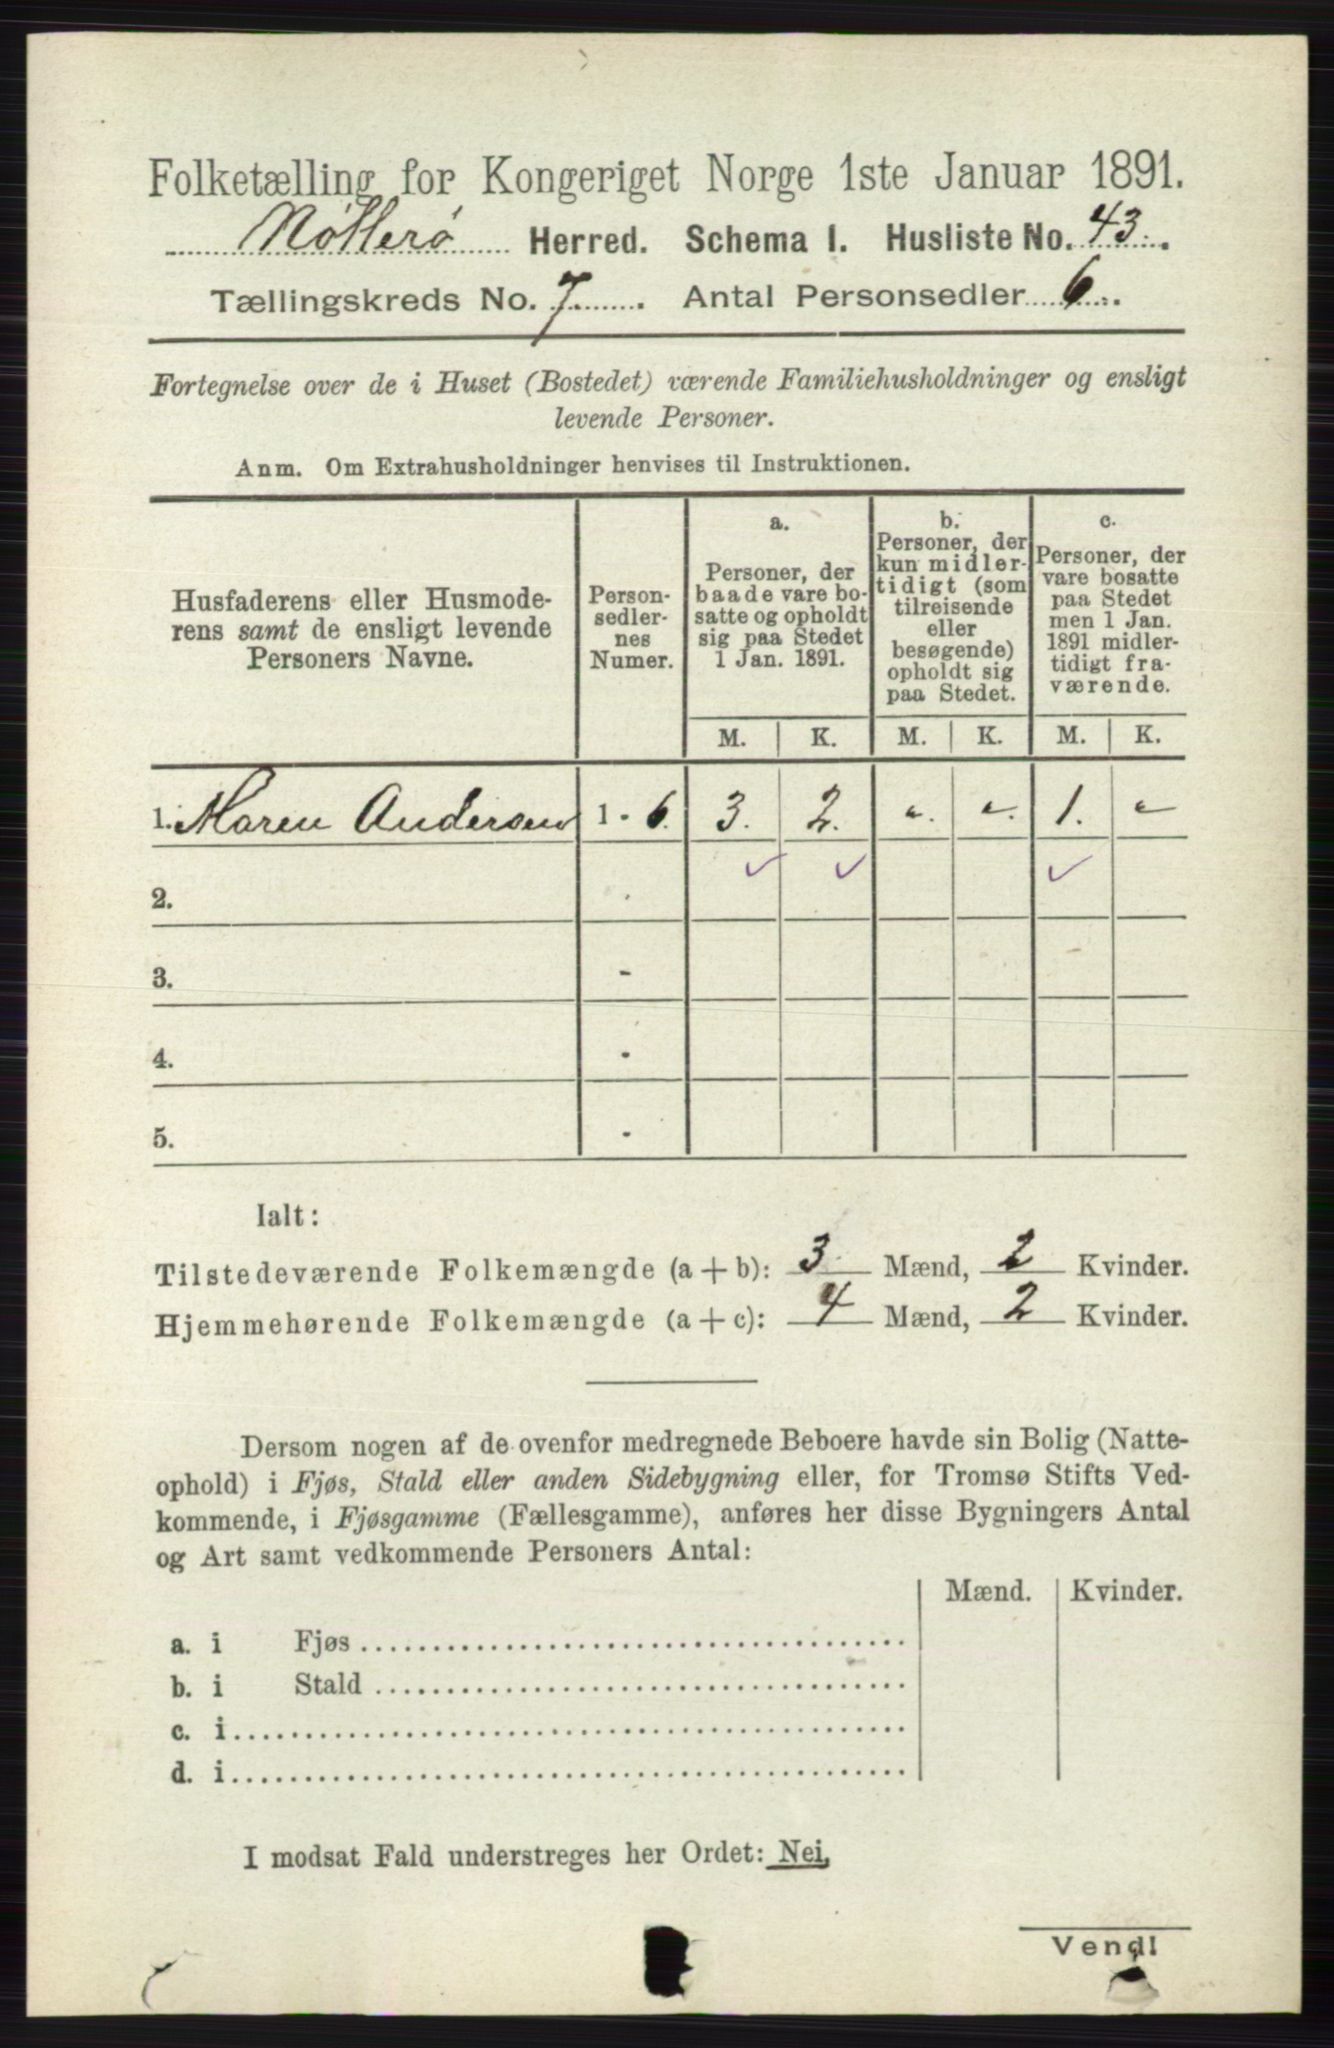 Folketælling for Kongeriget Norge 1ste Januar 1891.
Nøtterø Herred. Schema 1. Husliste No. 43.
Tællingskreds No. 7. Antal Personsedler 6.
Fortegnelse over de i Huset (Bostedet) værende Familiehusholdninger og ensligt
levende Personer.
Anm. Om Extrahusholdninger henvises til Instruktionen.
Husfaderens eller Husmode-
rens samt de ensligt levende
Personers Navne.
Person-
sedler-
nes
Numer.
a.
Personer, der
baade vare bo-
satte og opholdt
sig paa Stedet
1 Jan. 1891.
b.
Personer, der
kun midler-
tidigt (som
tilreisende
eller
besøgende)
opholdt sig
paa Stedet.
c.
Personer, der
vare bosatte
paa Stedet
men 1 Jan.
1891 midler-
tidigt fra-
værende.
M. K. M. K. M. K.
1. Maren Andersen 1 - 6. 3. 2. „. „. 1. „
2.
3. -
4. -
5. -
Ialt:
Tilstedeværende Folkemængde (a + b): 3 Mænd, 2 Kvinder.
Hjemmehørende Folkemængde (a + c): 4 Mænd, 2 Kvinder.
Dersom nogen af de ovenfor medregnede Beboere havde sin Bolig (Natte-
ophold) i Fjøs, Stald eller anden Sidebygning eller, for Tromsø Stifts Ved-
kommende, i Fjøsgamme (Fællesgamme), anføres her disse Bygningers Antal
og Art samt vedkommende Personers Antal:
Mænd. Kvinder.
a. i Fjøs
b. i Stald
c. i
d. i
I modsat Fald understreges her Ordet: Nei.
Vend!